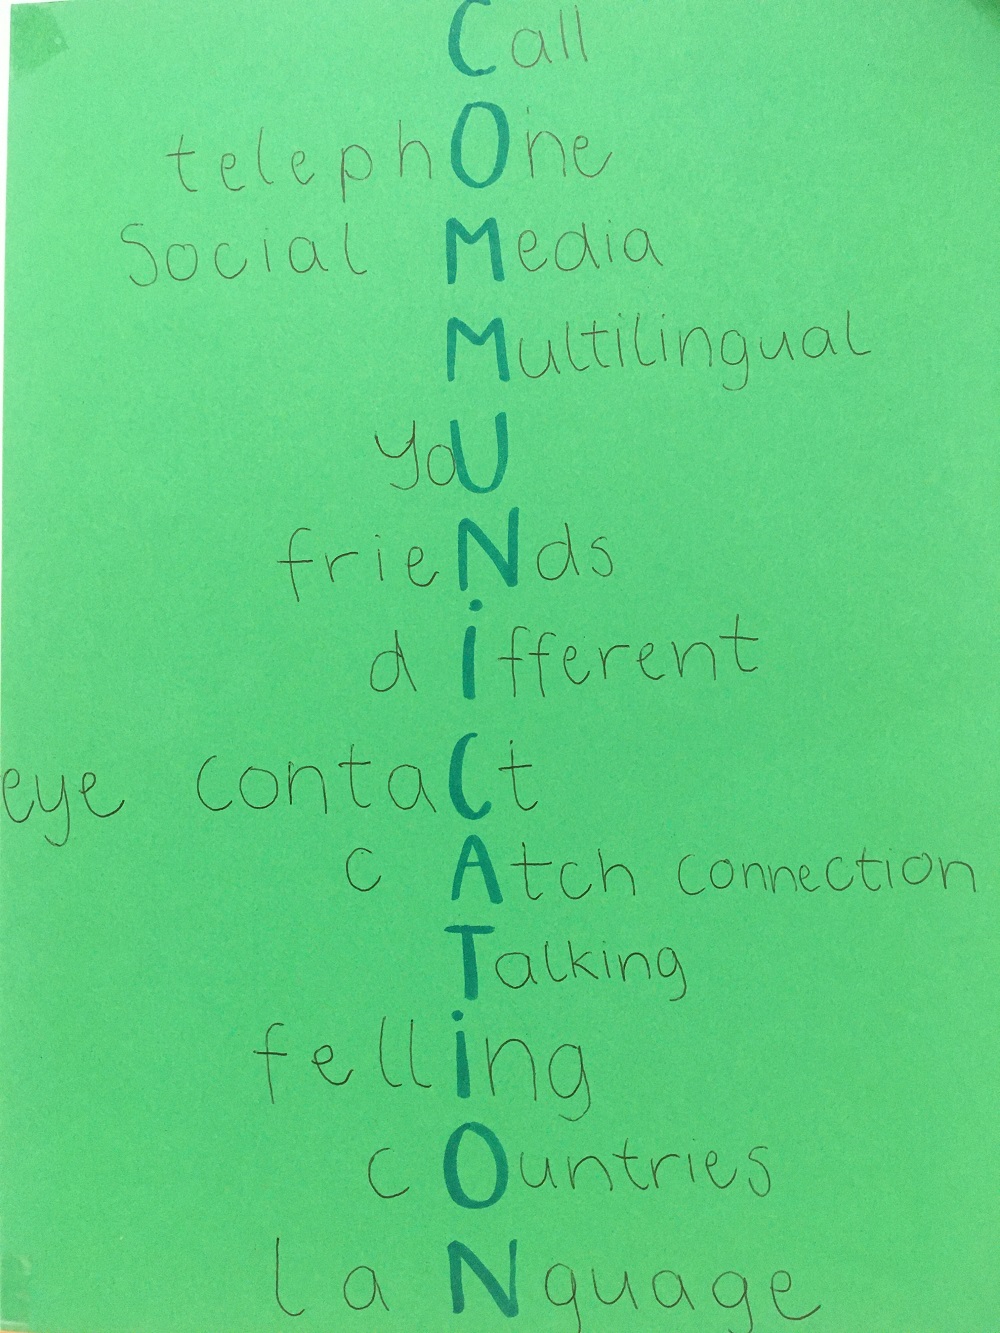 Call
telephOne
Social Media
Multilingual
yoU
frieNds
different
eye contaCt
cAtch connection
Talking
felling
cOuntries
laNguage